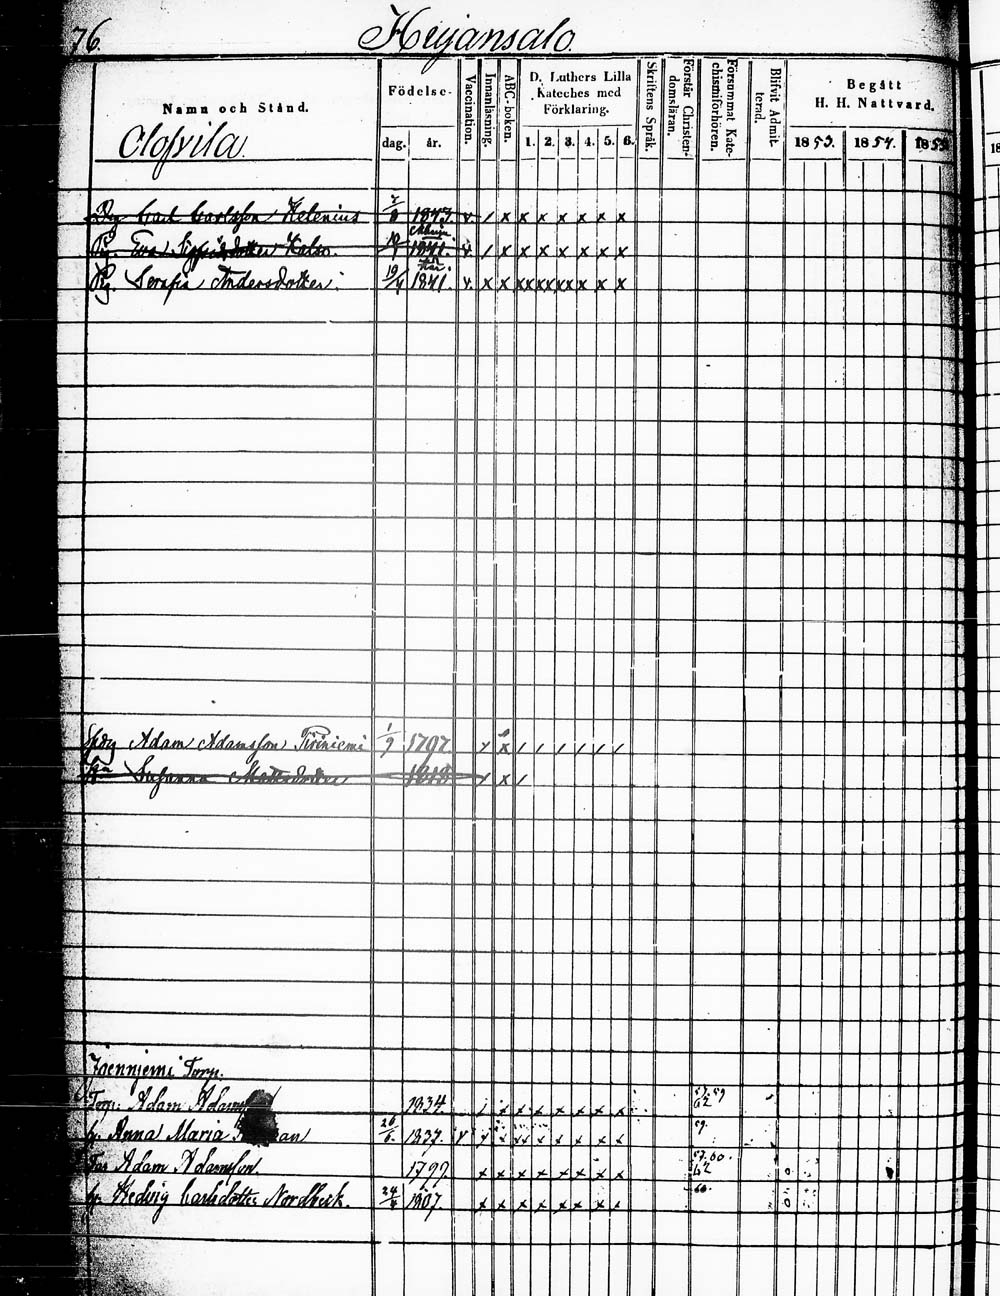 76.
Heijansalo
Namn och Stånd.
Olofsvila
Födelse-
dag. år.
Vaccination.
Innanläsning.
ABC-boken.
D. Luthers Lilla
Kateches med
Förklaring.
1. 2. 3. 4. 5. 6.
Skriftens Språk.
Förstår Christen-
domsläran.
Försummat Kate-
chismiförhören.
Blifvit Admit-
terad.
Begått
H. H. Nattvard.
1853. 1854. 1855
Carl Carlsson Helenius 2/8 1843. v. / x x x x x x x
Pig. Eva 1841. v. / x x x x x x x
Pig. Serafia Andersdotter. 19/4 1841. v. x x xx xx xx x x x
Adam Adamsson 1/9 1797. / x / / / / / /
Susanna Mattsdotter 1818 / x /
Torp.
Torp. Adam 1834. / x x x x x x x 57.59 62
h. Anna Maria 26/6. 1837. v / x xx x x x x x 59.
Far Adam Adamsson. 1797 x x x x x x x x 57.60. 62 o
h. Hedvig Carlsdotter Nordbeck. 24/4 1807. x x x x x x x x 60. o